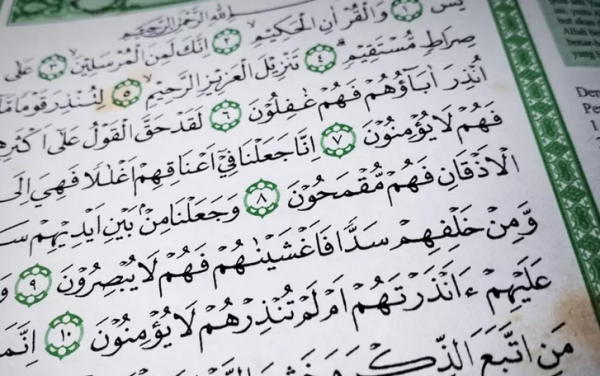 اللّٰهِ الرَّحْمٰنِ الرَّحِيْمِ
يٰسۤ ١ وَالْقُرْاٰنِ الْحَكِيْمِۙ ٢ اِنَّكَ لَمِنَ الْمُرْسَلِيْنَۙ ٣ عَلٰى
صِرَاطٍ مُّسْتَقِيْمٍۗ ٤ تَنْزِيْلَ الْعَزِيْزِ الرَّحِيْمِۙ ٥ لِتُنْذِرَ قَوْمًا مَّآ
اُنْذِرَ اٰبَاۤؤُهُمْ فَهُمْ غٰفِلُوْنَ ٦ لَقَدْ حَقَّ الْقَوْلُ عَلٰٓى
فَهُمْ لَا يُؤْمِنُوْنَ ٧ اِنَّا جَعَلْنَا فِيْٓ اَعْنَاقِهِمْ اَغْلٰلًا فَهِيَ اِلَى
الْاَذْقَانِ فَهُمْ مُّقْمَحُوْنَ ٨ وَجَعَلْنَا مِنْۢ بَيْنِ اَيْدِيْهِمْ
وَّمِنْ خَلْفِهِمْ سَدًّا فَاَغْشَيْنٰهُمْ فَهُمْ لَا يُبْصِرُوْنَ ٩
عَلَيْهِمْ ءَاَنْذَرْتَهُمْ اَمْ لَمْ تُنْذِرْهُمْ لَا يُؤْمِنُوْنَ ١٠ اِنَّمَا
مَنِ اتَّبَعَ الذِّكْرَ وَخَشِيَ
akan
Allah
yang
1